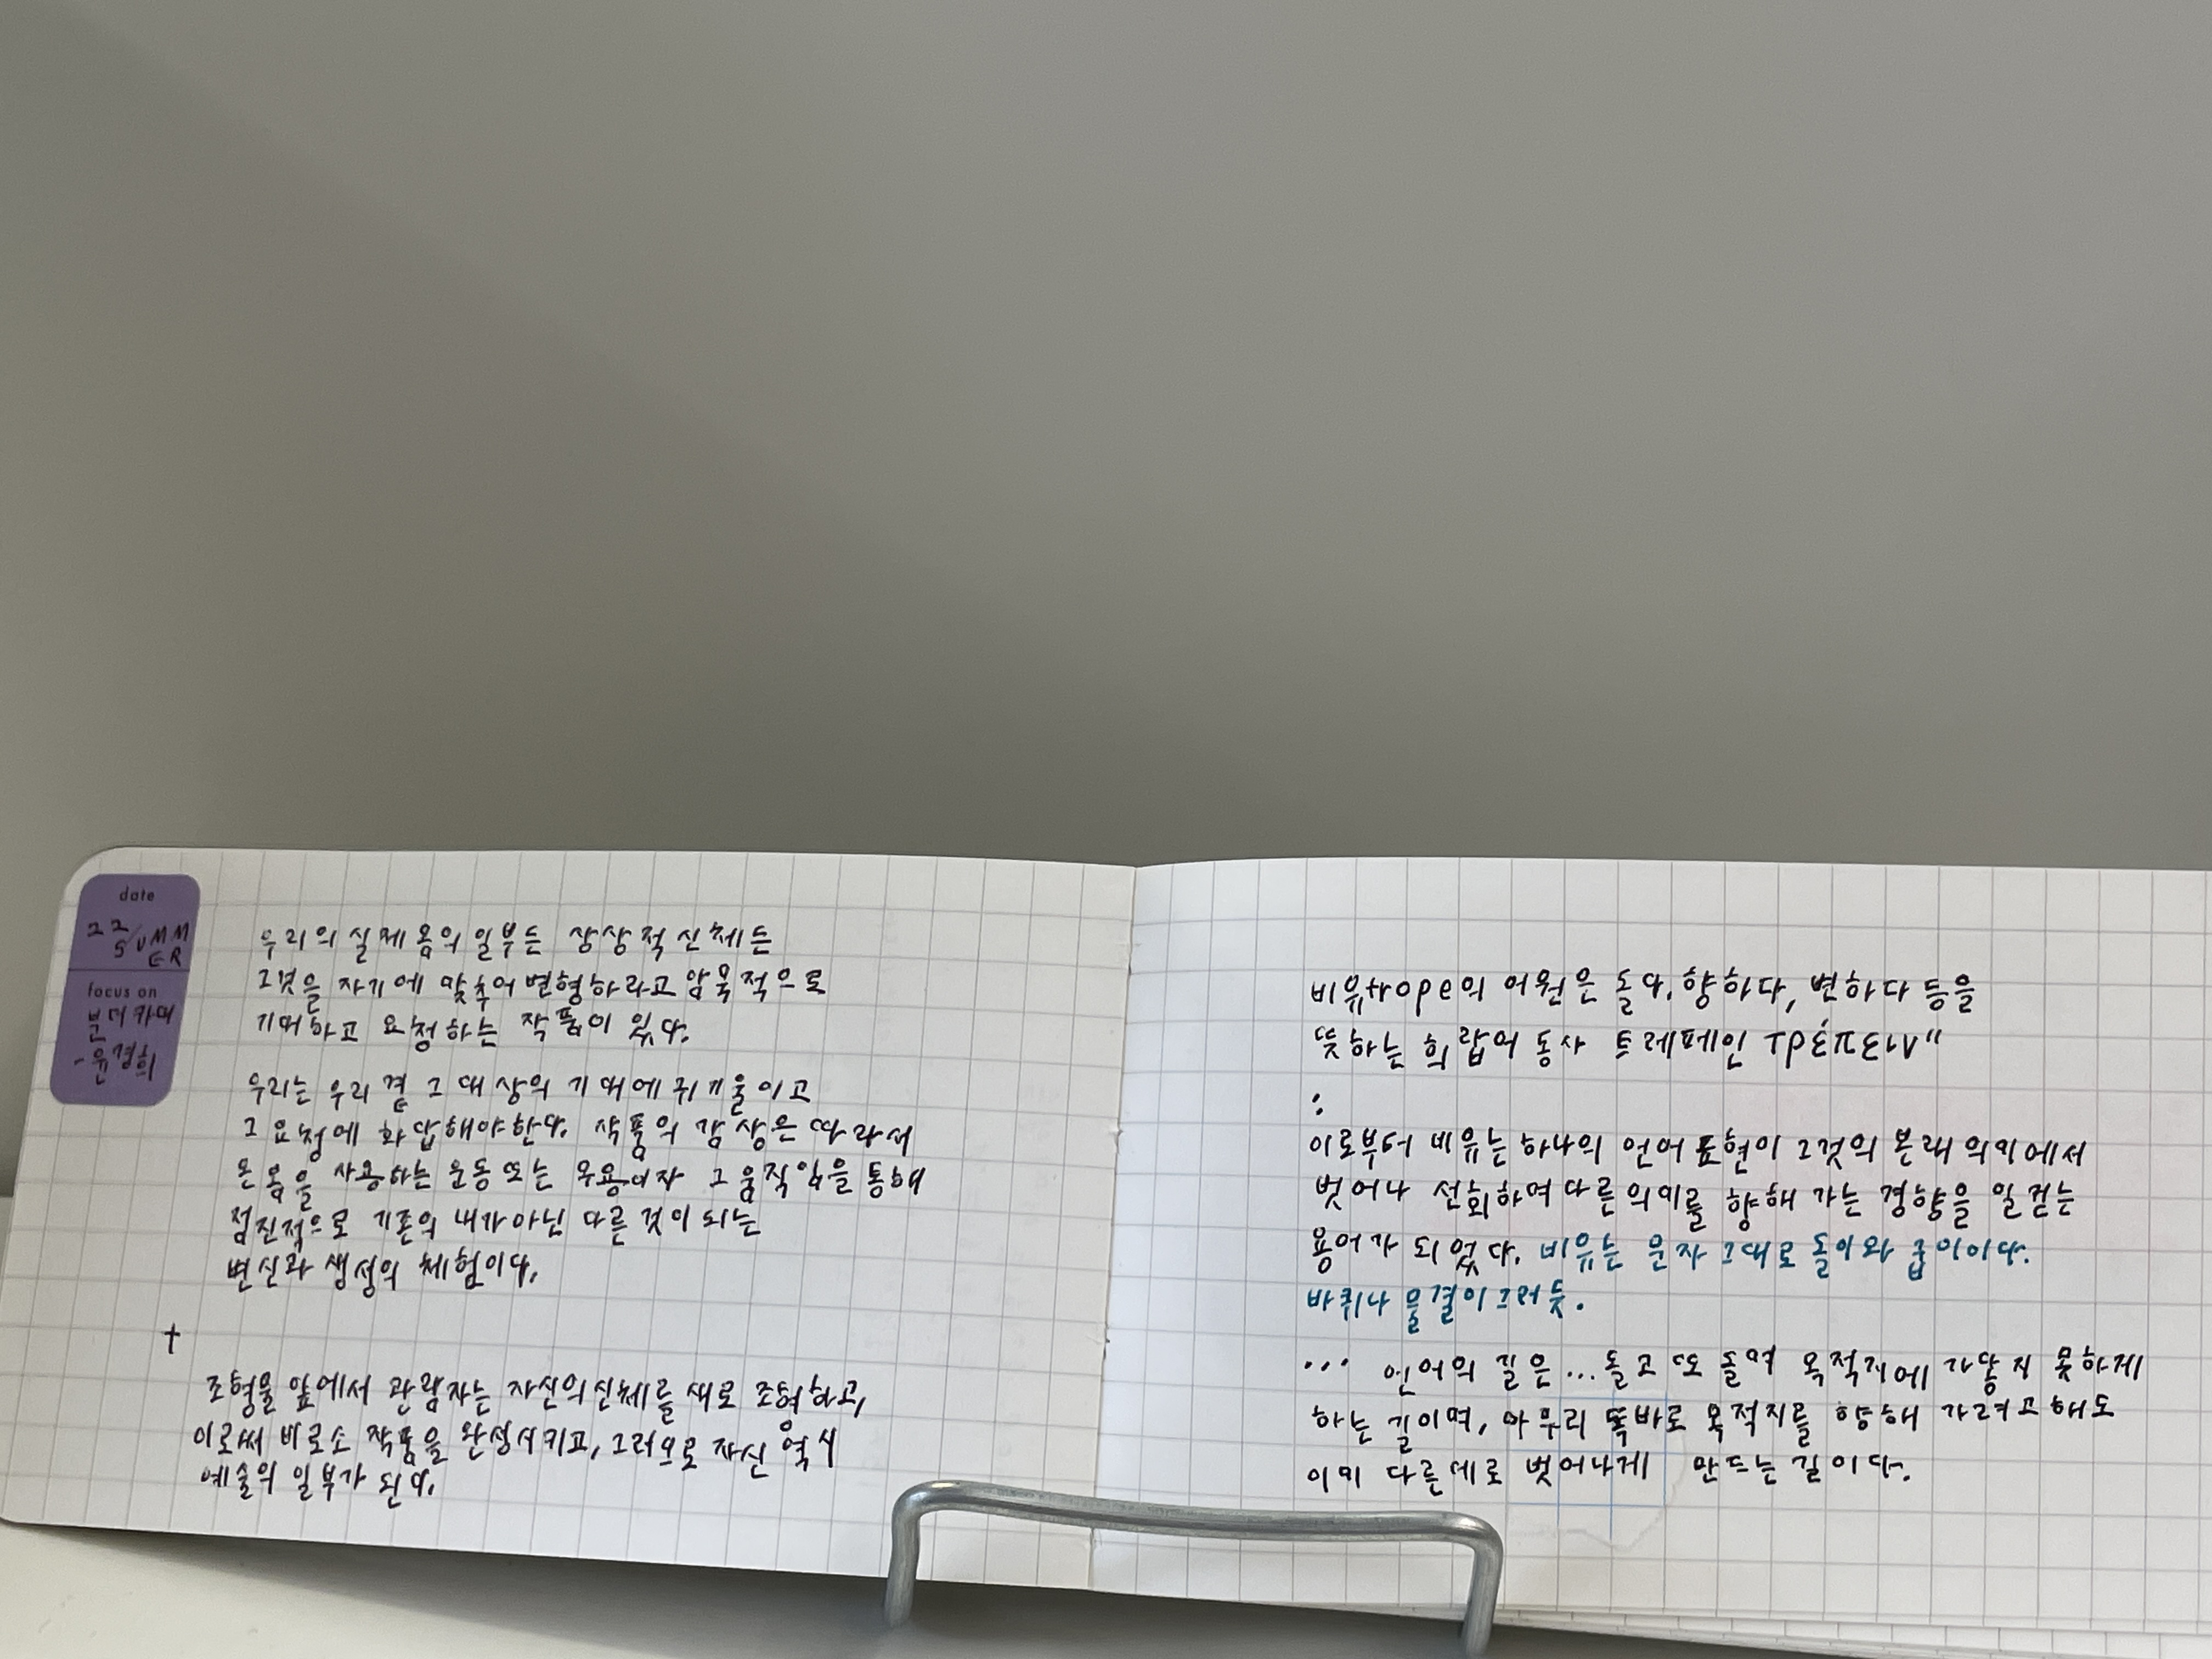 date
22
SUMM
ER
focus on
분더카머
-윤경희
우리의 실제 몸의 일부든 상상적 신체든
그것을 자기에 맞추어 변형하라고 암묵적으로
기대하고 요청하는 작품이 있다.
우리는 우리 곁 그 대상의 기대에 귀 기울이고
그 요청에 화답해야한다. 작품의 감상은 따라서
온 몸을 사용하는 운동 또는 무용이자 그 움직임을 통해
점진적으로 기존의 내가 아닌 다른 것이 되는
변신과 생성의 체험이다.
†
조형물 앞에서 관람자는 자신의 신체를 새로 조형하고,
이로써 비로소 작품을 완성시키고, 그러므로 자신 역시
예술의 일부가 된다.
비유trope의 어원은 돌다, 향하다, 변하다 등을
뜻하는 희랍어 동사 트레페인 τρέπειν"
:
이로부터 비유는 하나의 언어 표현이 그것의 본래 의미에서
벗어나 선회하며 다른 의미를 향해 가는 경향을 일컫는
용어가 되었다. 비유는 문자 그대로 돌이와 굽이이다.
바퀴나 물결이 그러듯.
... 언어의 길은...돌고 또 돌며 목적지에 가닿지 못하게
하는 길이며, 아무리 똑바로 목적지를 향해 가려고 해도
이미 다른 데로 벗어나게 만드는 길이다.